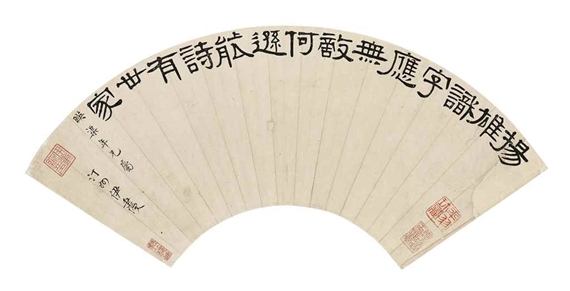 揚雄識字應無敵何遜能詩有世家
年兄屬
汀州伊秉綬